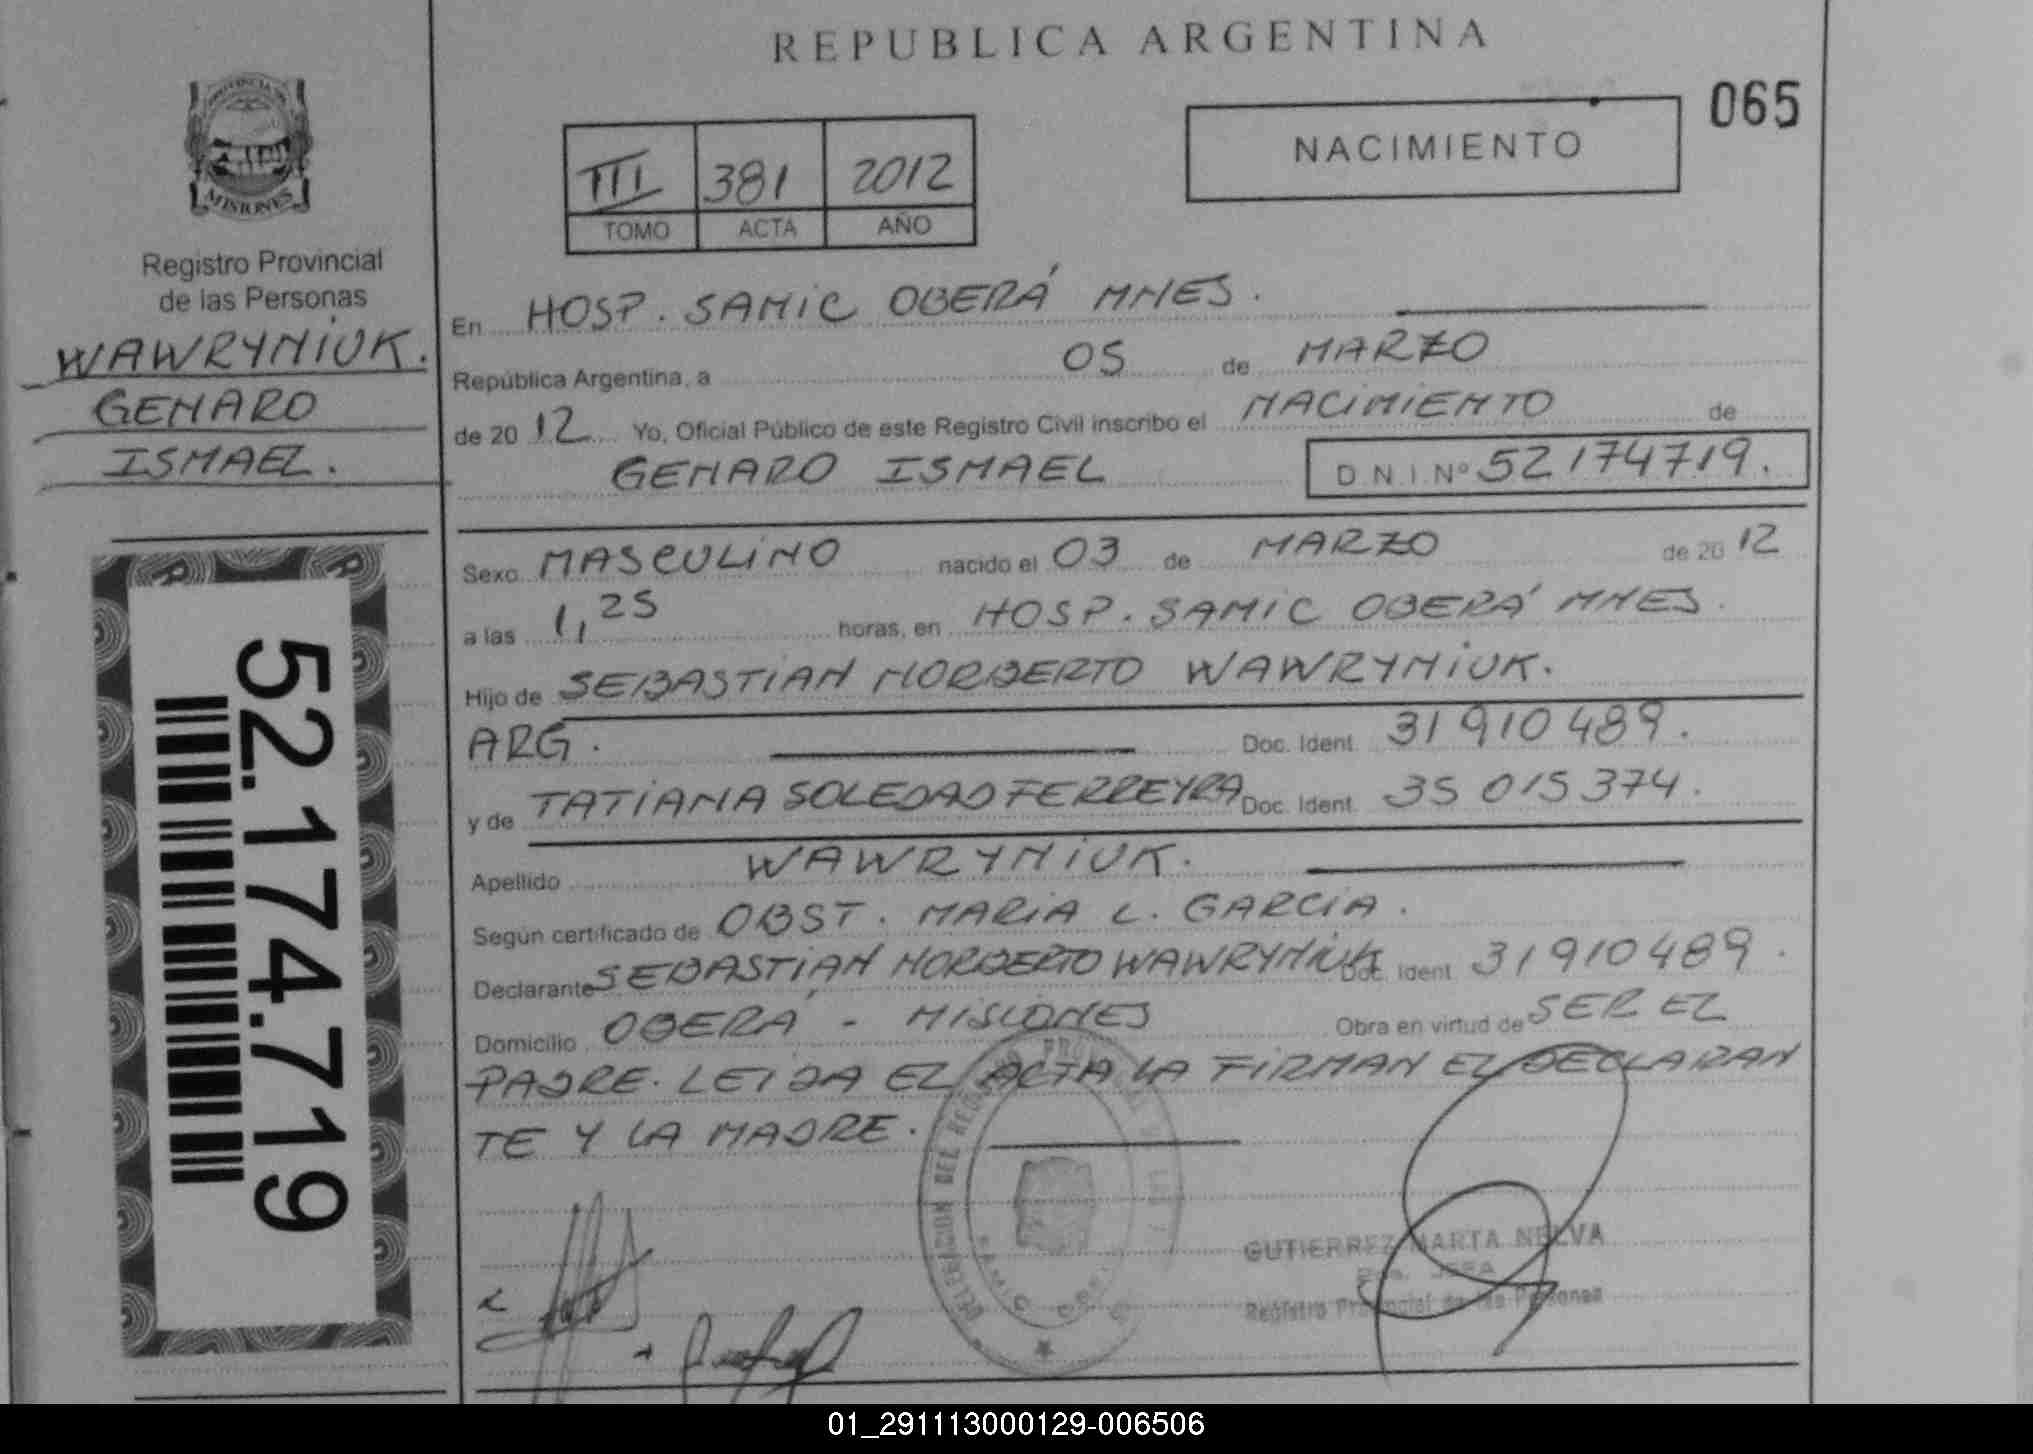 REPUBLICA ARGENTINA
065
NACIMIENTO
III 381 2012
TOMO ACTA AÑO
PROVINCIA DE
MISIONES
Registro Provincial
de las Personas
WAWRYNIUK.
GENARO
ISMAEL.
52.174.719
En HOSP. SAMIC OBERÁ MNES.
República Argentina, a 05 de MARZO
de 20 12 Yo, Oficial Público de este Registro Civil inscribo el NACIMIENTO de
GENARO ISMAEL D.N.I. Nº 52174719.
Sexo MASCULINO nacido el 03 de MARZO de 20 12
a las 1,25 horas, en HOSP. SAMIC OBERÁ MNES.
Hijo de SEBASTIAN NORBERTO WAWRYNIUK.
ARG. Doc. Ident. 31910489.
y de TATIANA SOLEDAD FERREYRA Doc. Ident. 35 015 374.
Apellido WAWRYNIUK.
Según certificado de OBST. MARIA L. GARCIA.
Declarante SEBASTIAN NORBERTO WAWRYNIUK Doc. Ident. 31910489.
Domicilio OBERÁ - MISIONES Obra en virtud de SER EL
PADRE. LEIDA EL ACTA LA FIRMAN EL DECLARAN
TE Y LA MADRE.
DELEGACION DEL REGISTRO PROVINCIAL DE LAS
SAMIC
GUTIERREZ MARTA NELVA
JEFA
Registro Provincial de las Personas
01_291113000129-006506